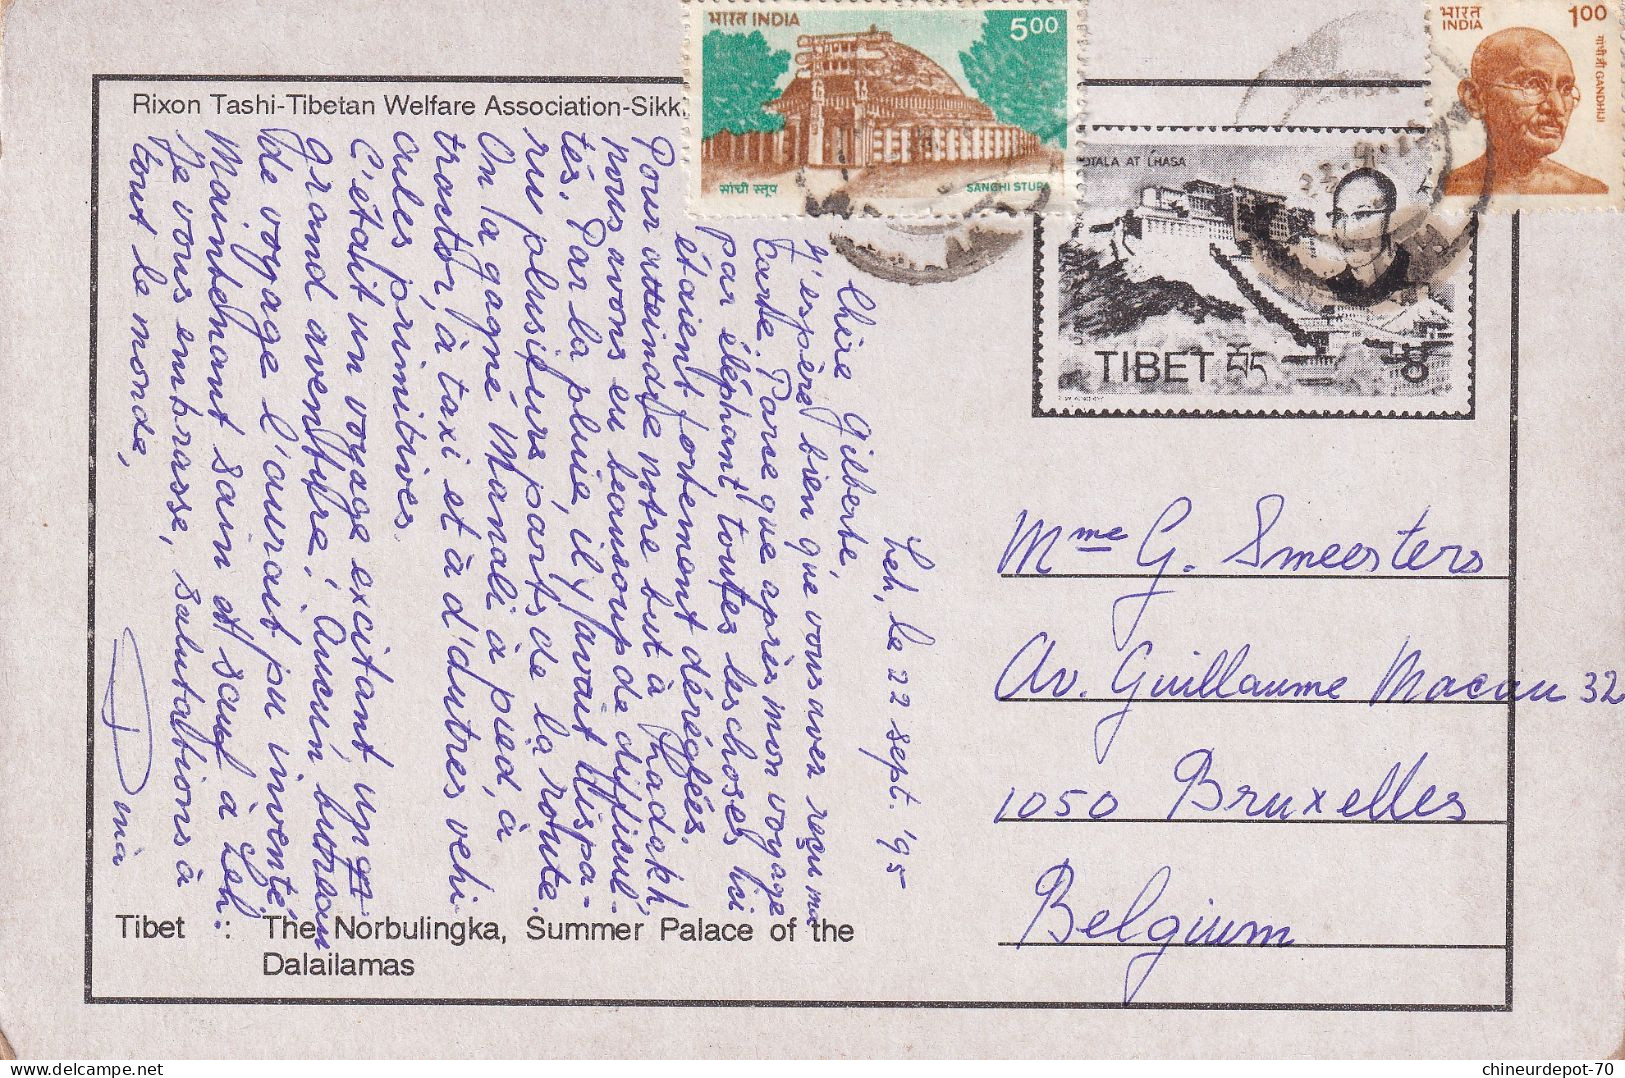 भारत INDIA
5.00
सांची स्तूप
SANCHI STUPA
भारत
INDIA
1.00
गांधीजी GANDHIJI
Rixon Tashi-Tibetan Welfare Association-Sikk
OTALA AT LHASA
TIBET བོད
8
Leh, le 22 sept. '95
Chère Gilberte,
J'espère bien que vous avez reçu ma
carte. Parce que après mon voyage
par éléphant toutes les choses ici
étaient fortement déréglées.
Pour atteindre notre but à Ladakh
nous avons eu beaucoup de difficul-
tés. Par la pluie, il y avait dispa-
ru plusieurs parts de la route.
On a gagné Manali à pied, à
tractor, à taxi et à d'autres vehi
cules primitives.
C'était un voyage excitant, un
grand aventure! Aucun bureau
de voyage l'aurait pu inventé.
Maintenant sain et sauf à Leh.
Je vous embrasse, salutations à
tout le monde,
Mme G. Smeesters
Av. Guillaume Macau 32
1050 Bruxelles
Belgium
Tibet : The Norbulingka, Summer Palace of the
Dalailamas
chineurdepot-70
delcampe.net